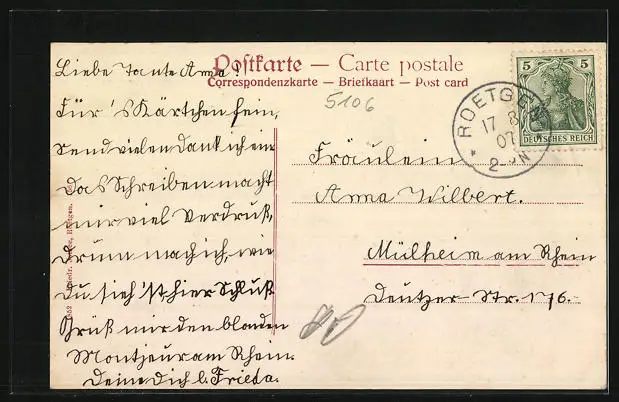 Postkarte — Carte postale
Correspondenzkarte — Briefkaart — Post card
5106
Liebe Tante Anna!
Für's Kärtchen fein,
send vielen Dank ich ein
Das Schreiben macht
mir viel Verdruß,
Drum mach ich, wie
Du sieh'st, hier Schluß
Grüß mir den blonden
Monsjeur am Rhein.
Deine Dich l. Frieda.
5
5
DEUTSCHES REICH
ROETGEN
17 8
07
2-3N
Fräulein
Anna Wilbert.
Mülheim am Rhein
Deutzer-Str. 176.